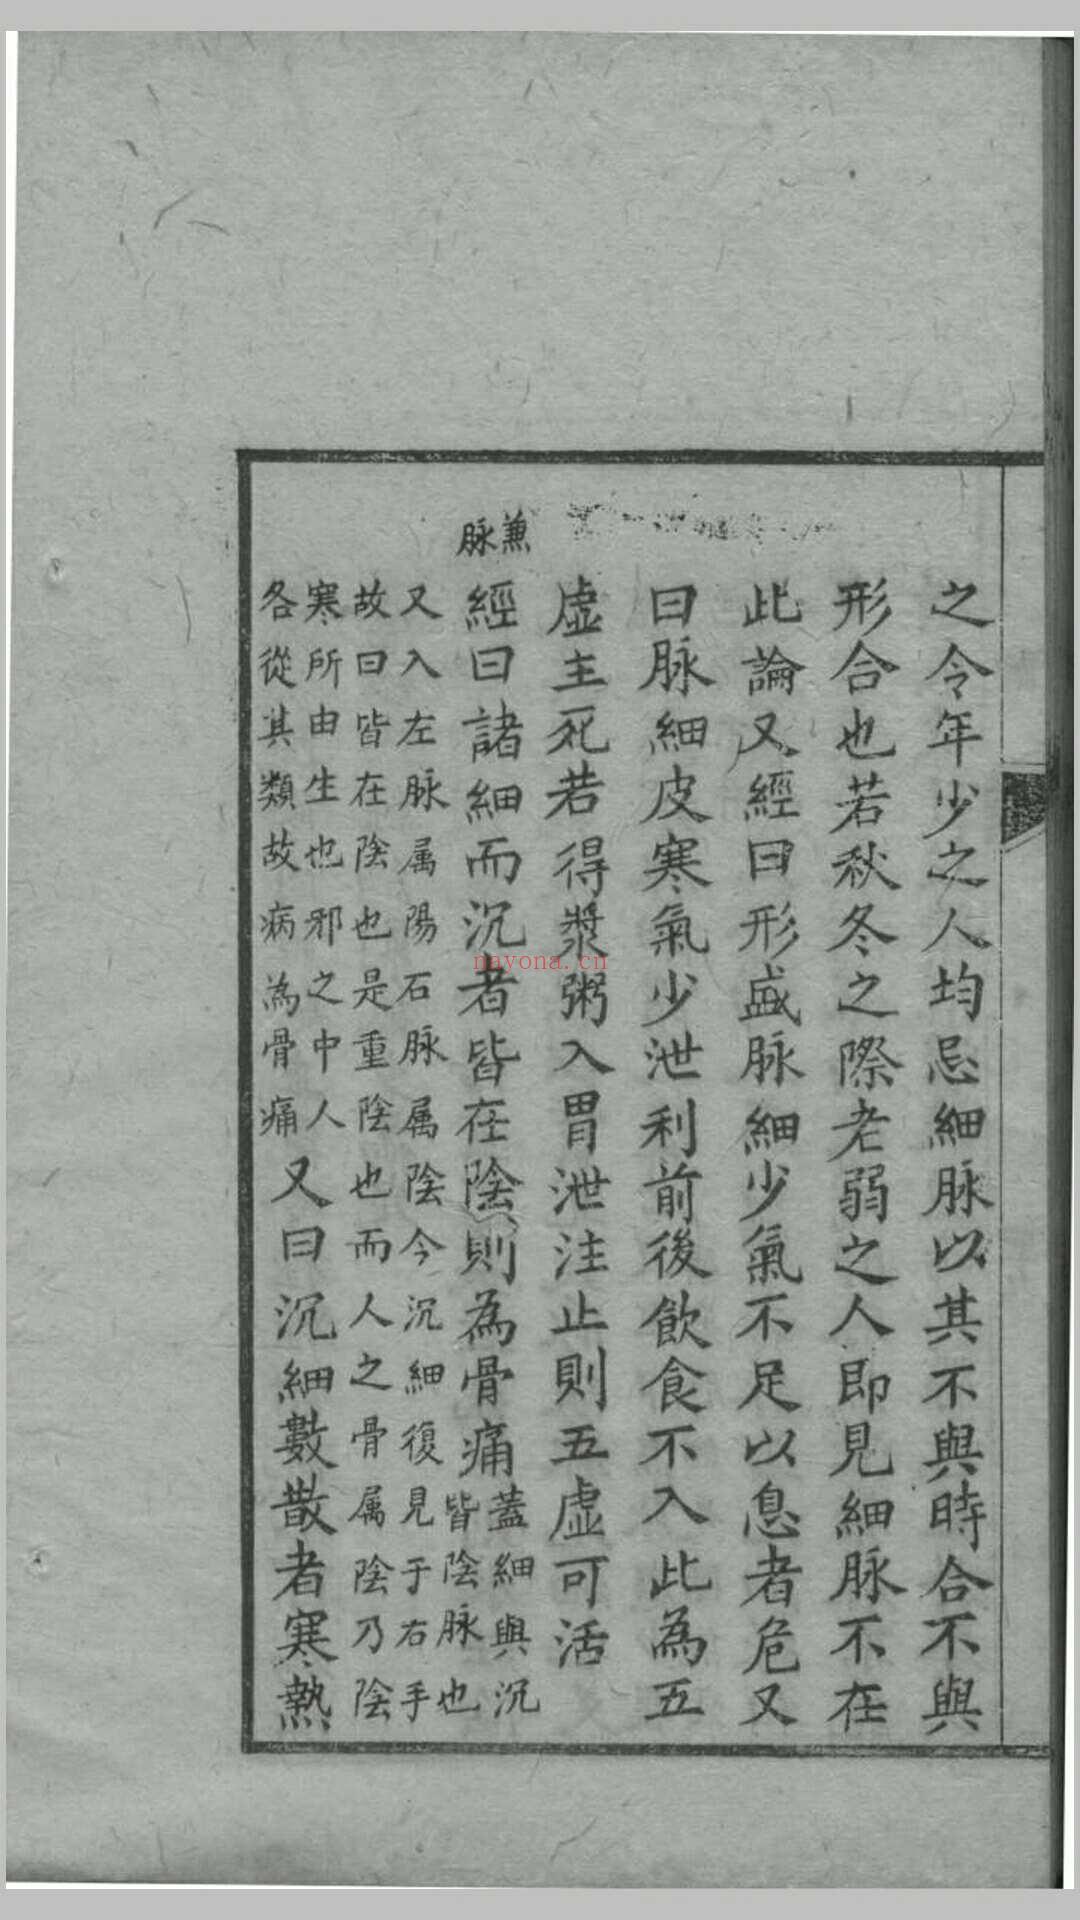 之令年少之人均忌細脉以其不與時合不與
形合也若秋冬之際老弱之人即見細脉不在
此論又經曰形盛脉細少氣不足以息者危又
曰脉細皮寒氣少泄利前後飲食不入此為五
虛主死若得漿粥入胃泄注止則五虛可活
兼
脉
經曰諸細而沉者皆在陰則為骨痛
蓋細與沉
皆陰脉也
又入左脉属陽石脉属陰今沉細復見于右手
故曰皆在陰也是重陰也而人之骨属陰乃陰
寒所由生也邪之中人
各從其類故病為骨痛
又曰沉細數散者寒熱
nayona.cn